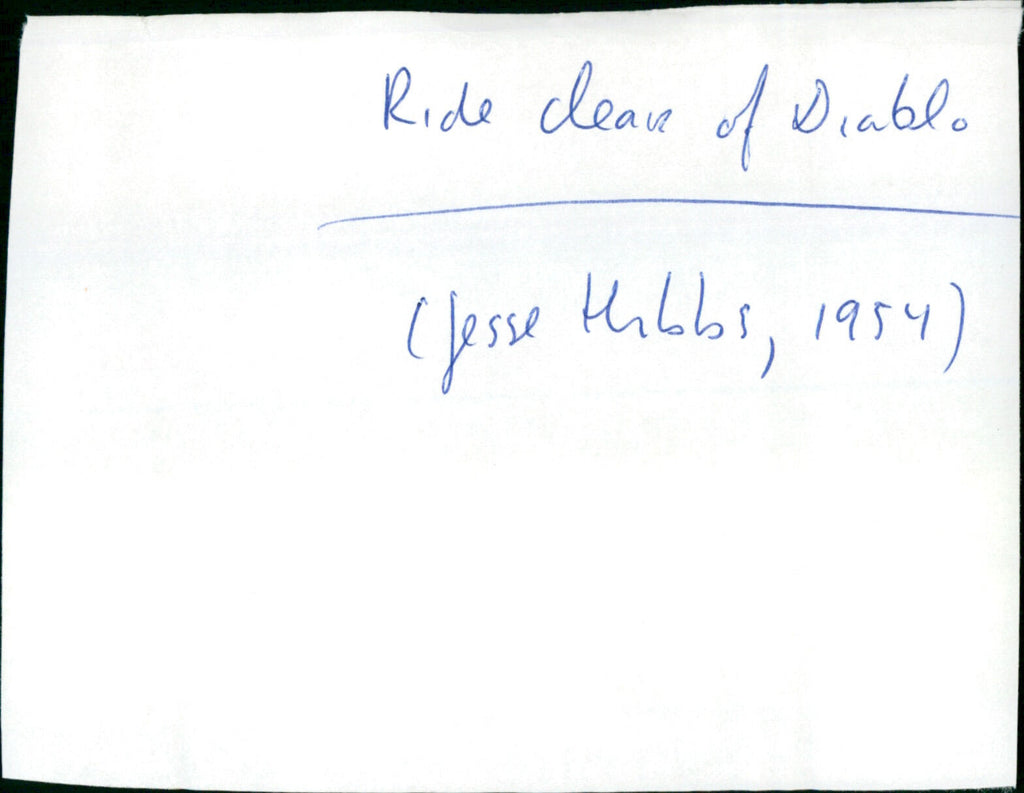 Ride clear of Diablo
(Jesse Hibbs, 1954)